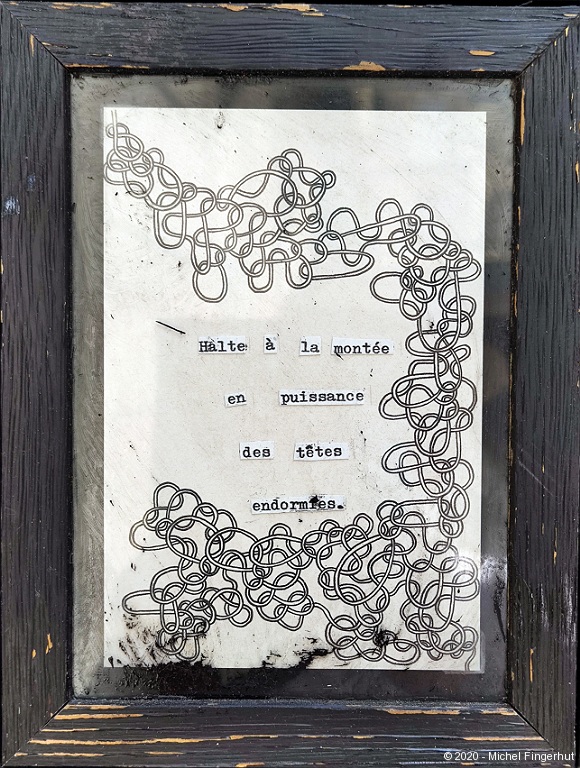 Halte à la montée
en puissance
des têtes
endormies.
© 2020 - Michel Fingerhut